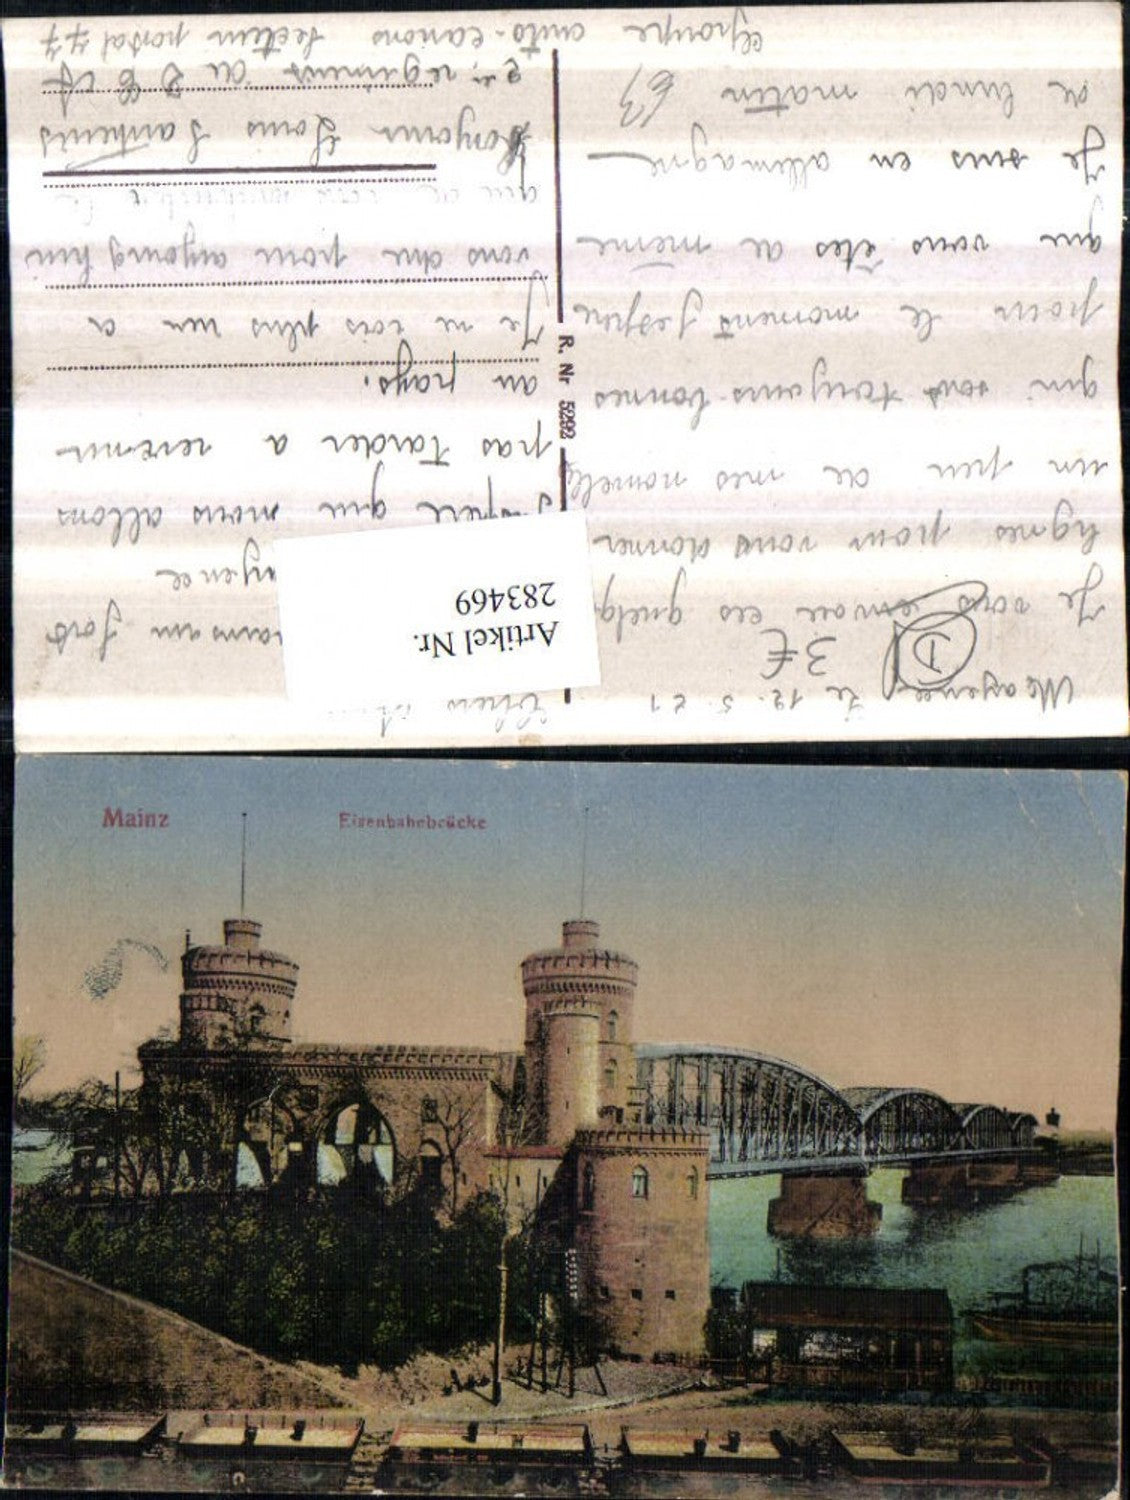 Mayence le 12.5.21
Je vous envoi ces quelq
lignes pour vous donner
un peu de mes nouvelles
qui sont toujours bonnes
pour le moment j'espere
que vous êtes de même
Je suis en allemagne
de lundi matin
Chers
fort
J'espere que nous allons
pas tarder a revenir
au pays.
Je ne vois plus rien a
vous dire pour aujourd'hui
que de vous
Bonjour Louis
2e regiment de D C A
Groupe auto-canons Secteur postal 77
3 €
D
R. Nr 5292
Artikel Nr.
283469
Mainz
Eisenbahnbrücke